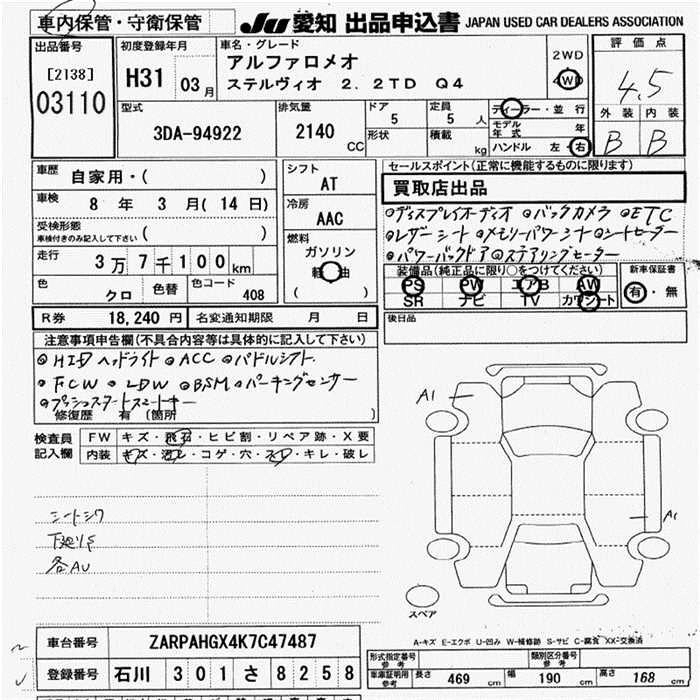 車内保管・守衛保管
JU 愛知 出品申込書 JAPAN USED CAR DEALERS ASSOCIATION
出品番号
[2138]
03110
初度登録年月
H31 03 月
車名・グレード
アルファロメオ
ステルヴィオ 2.2TD Q4
2WD
4WD
評価点
4.5
外装 内装
B B
型式
3DA-94922
排気量
2140 CC
ドア
5
定員
5 人
形状
積載
kg
ディーラー・並行
モデル年式 年
ハンドル 左・右
車歴
自家用・( )
車検
8 年 3 月(14日)
受検形態
車検付きのみ記入して下さい ( )
走行
3万7千100km
色
クロ
色替
色コード
408
シフト
AT
冷房
AAC
燃料
ガソリン
軽油
( )
セールスポイント(正常に機能するものに限ります)
買取店出品
◎ディスプレイオーディオ ◎バックカメラ ◎ETC
◎レザーシート ◎メモリーパワーシート ◎シートヒーター
◎パワーバックドア ◎ステアリングヒーター
装備品(純正品に限り○をつけてください)
PS PW エアB AW
SR ナビ TV カワシート
新車保証書
有・無
R券 18,240 円
名変通知期限 月 日
後日品
注意事項申告欄(不具合内容等は具体的に記入して下さい)
◎HIDヘッドライト ◎ACC ◎パドルシフト
◎FCW ◎LDW ◎BSM ◎パーキングセンサー
◎プッシュスタートスマートキー
修復歴 有 (箇所 )
検査員記入欄
FW キズ・飛石・ヒビ割・リペア跡・X要
内装 キズ・汚レ・コゲ・穴・スレ・キレ・破レ
シートシワ
下廻りS
各AU
A1
A1
スペア
A-キズ E-エクボ U-凹み W-補修跡 S-サビ C-腐食 XX-交換済
車台番号 ZARPAHGX4K7C47487
登録番号 石川 301 さ 8258
形式指定番号
参考
類別区分番号
参考
車庫証明用
参考
長さ 469 cm 幅 190 cm 高さ 168 cm